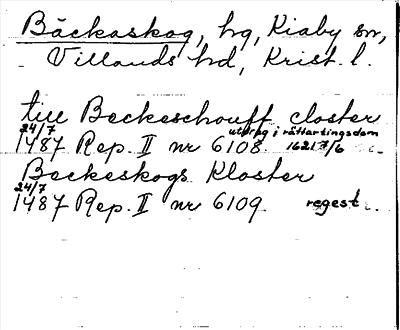 Bäckaskog, hg, Kiaby sn,
Villands hd, Krist. l.
till Beckeschouff closter
24/7 utdrag i rättartingsdom
1487 Rep. II nr 6108 1621 7/6
Beckeskogs Kloster
24/7
1487 Rep. II nr 6109 regest